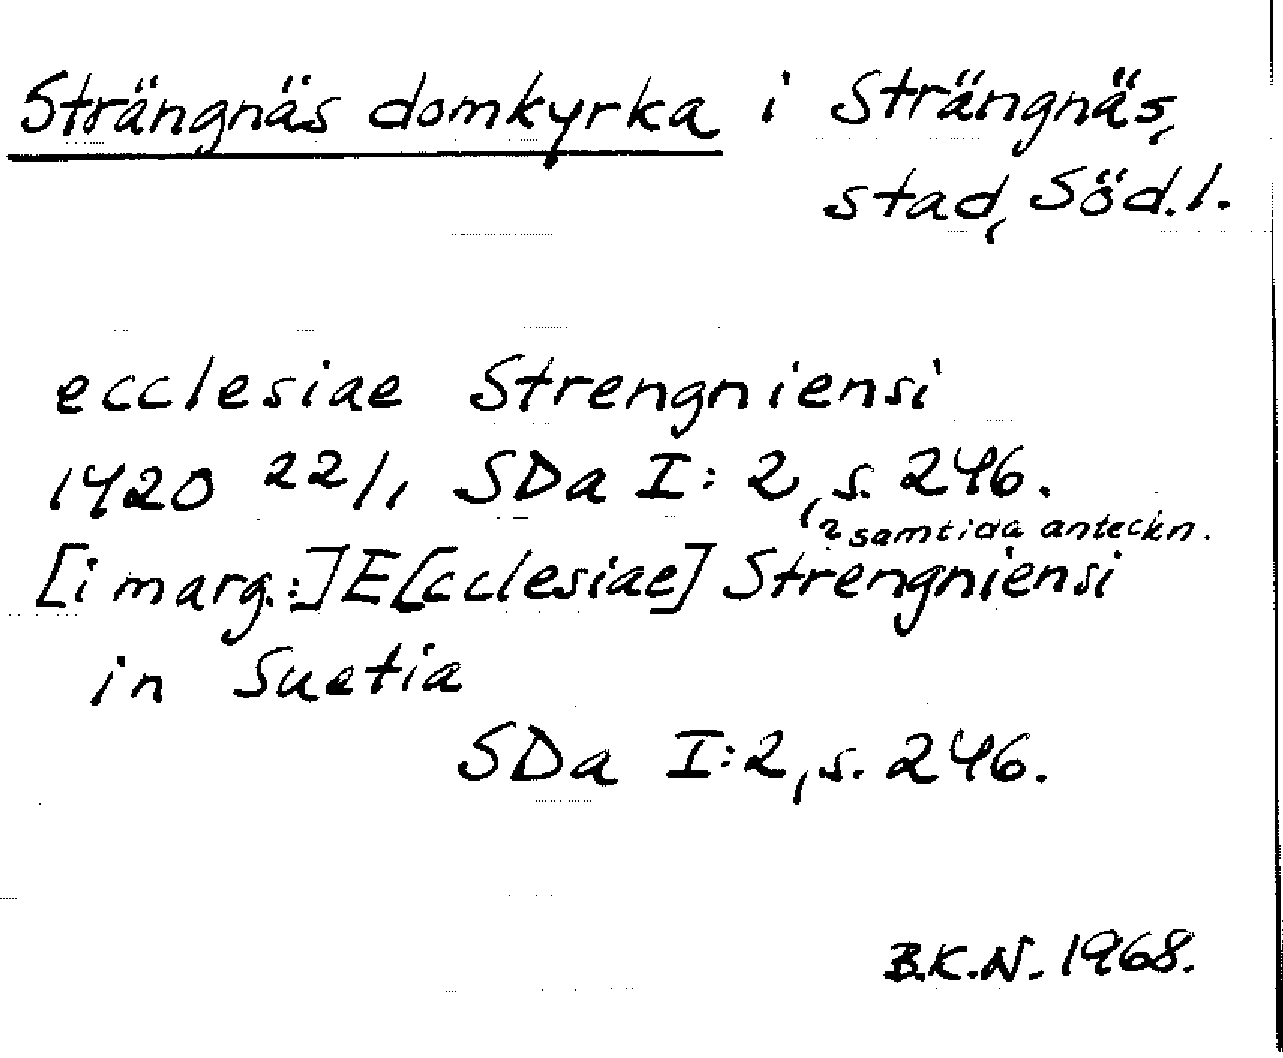 Strängnäs domkyrka i Strängnäs,
stad, Söd.l.
ecclesiae Strengniensi
1420 22/1 SDa I:2, s. 246.
2 samtida anteckn.
[i marg.:] E[cclesiae] Strengniensi
in Suetia
SDa I:2, s. 246.
B.K.N. 1968.